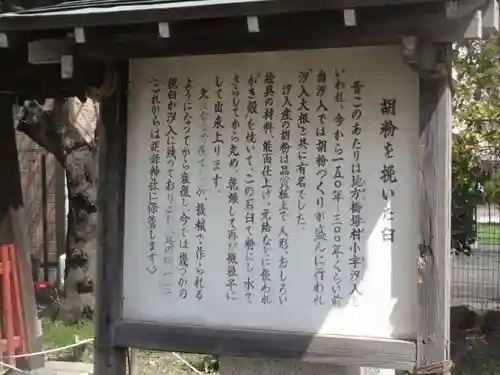 胡粉を挽いた臼
昔このあたりは地方橋場村小字汐入と
いわれ、今から一五〇年~三〇〇年くらい前
当汐入では胡粉づくりが盛んに行われ
(汐入大根と共に有名でした。)
汐入産の胡粉は品質極上で、人形のおしろい
絵具の材料、能面仕上げ、元結などに使われ
(かき殻)を焼いて、この石臼で粉にし水で
さらしてから丸め、乾燥して再び微粒子に
して出来上ります。
機械で作られる
ようになってから衰微し、今では幾つかの
挽臼が汐入に残っており
(これからは胡録神社に保管します。)